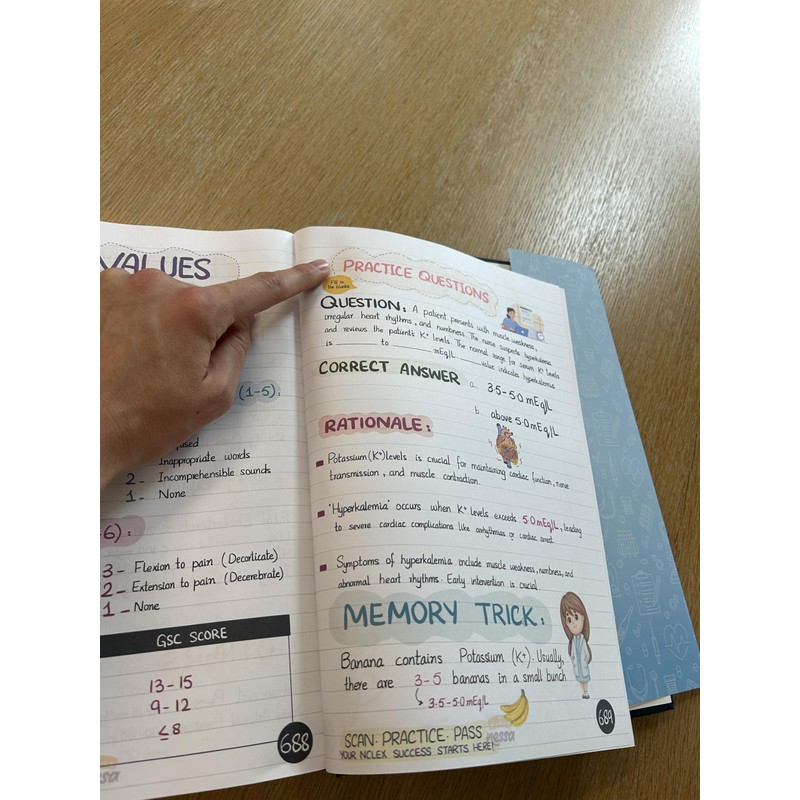 VALUES
(1-5):
Inappropriate words
2 - Incomprehensible sounds
1 - None
-6):
3 - Flexion to pain (Decorticate)
2 - Extension to pain (Decerebrate)
1 - None
GSC SCORE
13-15
9-12
≤8
688
PRACTICE QUESTIONS
Fill in the blanks
QUESTION: A patient presents with muscle weakness,
irregular heart rhythms, and numbness. The nurse suspects hyperkalemia
and reviews the patient's K+ levels. The normal range for serum K+ levels
is ______ to ______ mEq/L. ______ value indicates hyperkalemia
CORRECT ANSWER
a. 3.5-5.0 mEq/L
b. above 5.0 mEq/L
RATIONALE:
Potassium (K+) levels is crucial for maintaining cardiac function, nerve
transmission, and muscle contraction.
"Hyperkalemia" occurs when K+ levels exceeds 5.0 mEq/L, leading
to severe cardiac complications like arrhythmias or cardiac arrest.
Symptoms of hyperkalemia include muscle weakness, numbness, and
abnormal heart rhythms. Early intervention is crucial.
MEMORY TRICK:
Banana contains Potassium (K+). Usually,
there are 3-5 bananas in a small bunch
3.5-5.0 mEq/L
SCAN. PRACTICE. PASS
YOUR NCLEX SUCCESS STARTS HERE!
nessa
689